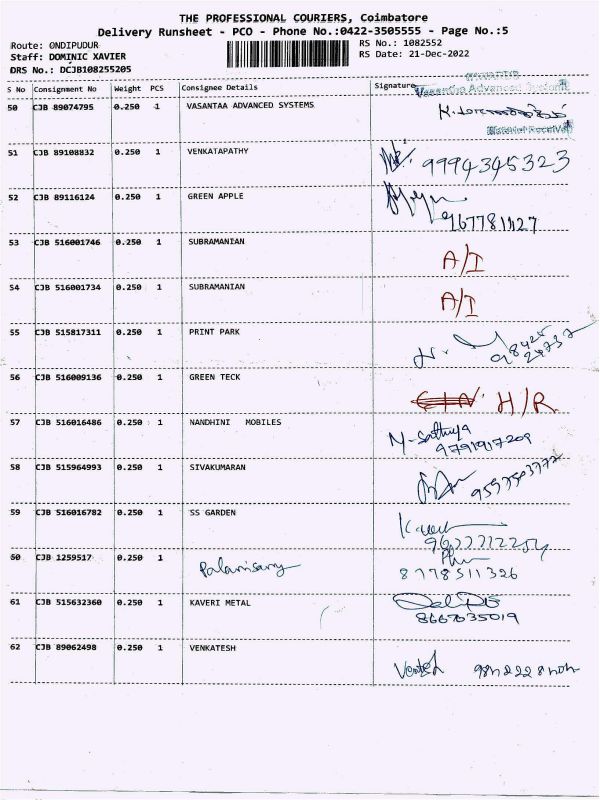 THE PROFESSIONAL COURIERS, Coimbatore
Delivery Runsheet - PCO - Phone No.:0422-3505555 - Page No.:5
Route: ONDIPUDUR RS No.: 1082552
Staff: DOMINIC XAVIER RS Date: 21-Dec-2022
DRS No.: DCJB108255205
S No Consignment No Weight PCS Consignee Details Signature
Vasantaa Advanced Systems
50 CJB 89074795 0.250 1 VASANTAA ADVANCED SYSTEMS
Material Received
51 CJB 89108832 0.250 1 VENKATAPATHY 9994345323
52 CJB 89116124 0.250 1 GREEN APPLE
967781127
53 CJB 516001746 0.250 1 SUBRAMANIAN
A/I
54 CJB 516001734 0.250 1 SUBRAMANIAN
A/I
55 CJB 515817311 0.250 1 PRINT PARK
98425
24737
56 CJB 516009136 0.250 1 GREEN TECK
H/R
57 CJB 516016486 0.250 1 NANDHINI MOBILES M-Sathya
9791917209
58 CJB 515964993 0.250 1 SIVAKUMARAN
59 CJB 516016782 0.250 1 SS GARDEN
60 CJB 1259517 0.250 1 Palanisamy
8778511326
61 CJB 515632360 0.250 1 KAVERI METAL
8667635019
62 CJB 89062498 0.250 1 VENKATESH